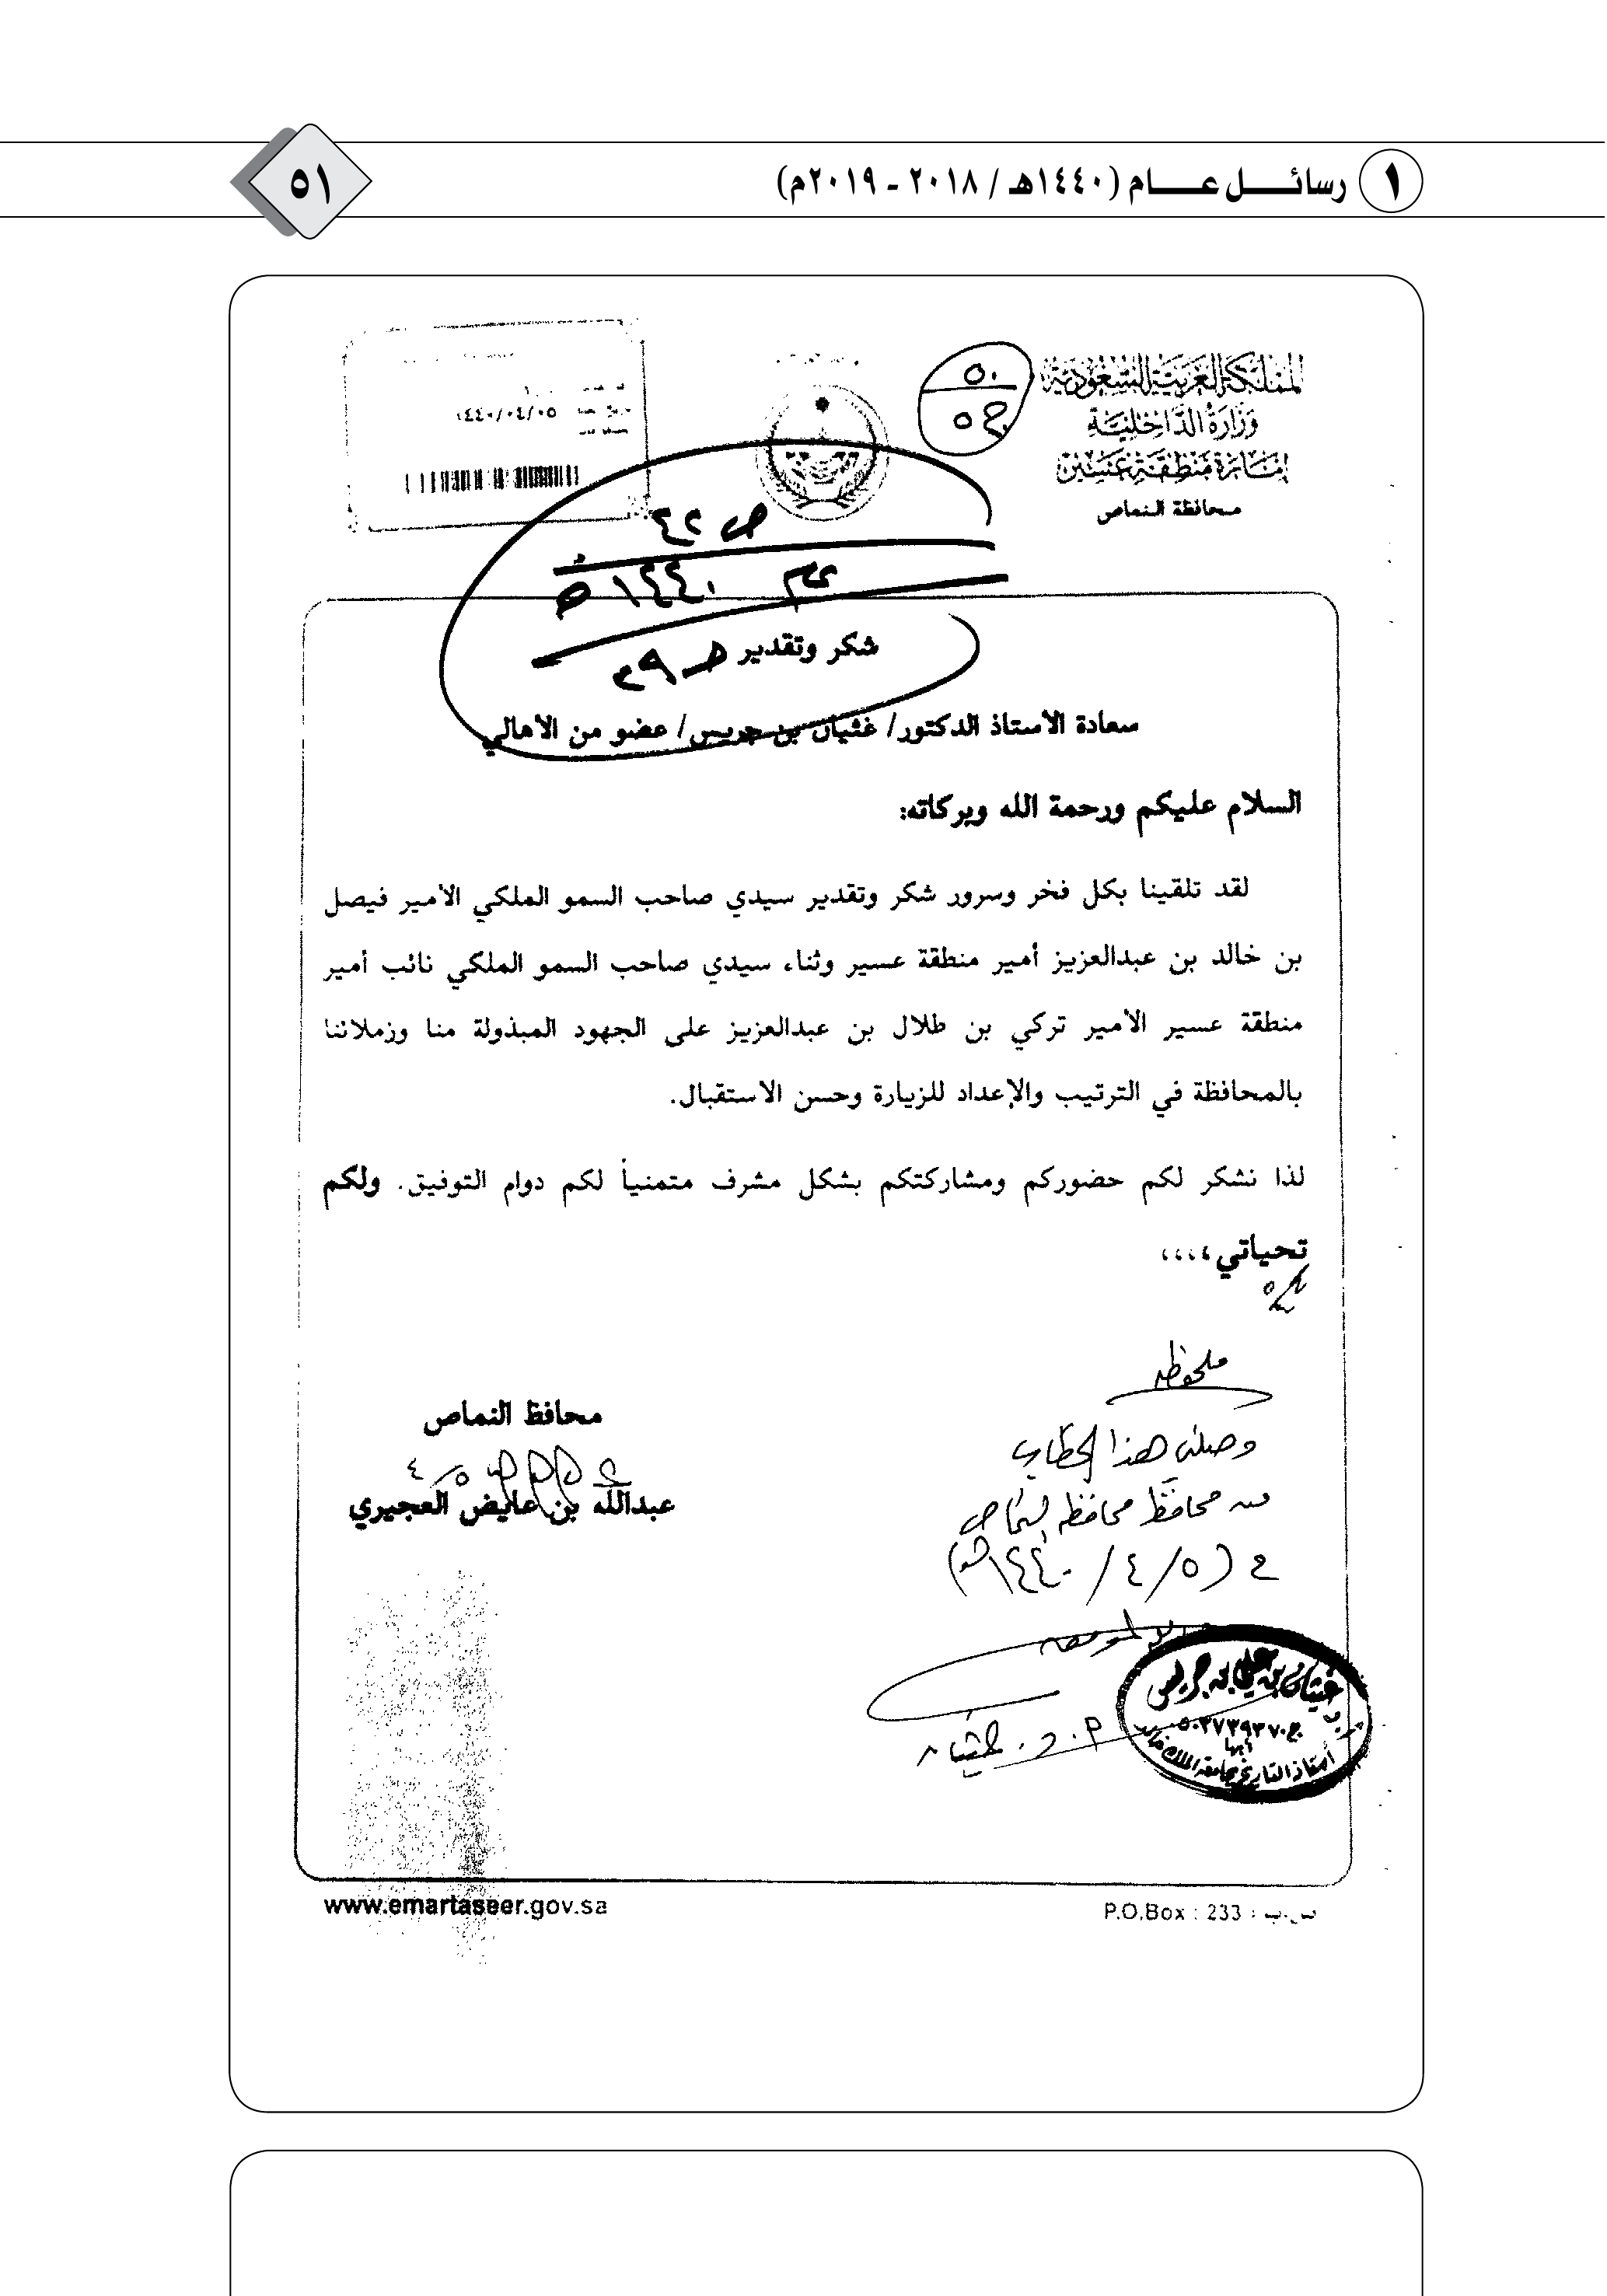 ١ رسائــــل عــــــام (١٤٤٠هـ / ٢٠١٨ ـ ٢٠١٩م)
٥١
المملكة العربية السعودية
وزارة الداخلية
إمارة منطقة عسير
محافظة النماص
٥٠
ج ٥
١٤٤٠/٠٤/٠٥
ص ٤٢
١٤٤٠هـ
شكر وتقدير
سعادة الأستاذ الدكتور/ غثيان بن جريس/ عضو من الأهالي
السلام عليكم ورحمة الله وبركاته:
لقد تلقينا بكل فخر وسرور شكر وتقدير سيدي صاحب السمو الملكي الامير فيصل
بن خالد بن عبدالعزيز أمير منطقة عسير وثناء سيدي صاحب السمو الملكي نائب أمير
منطقة عسير الامير تركي بن طلال بن عبدالعزيز على الجهود المبذولة منا وزملائنا
بالمحافظة في الترتيب والإعداد للزيارة وحسن الاستقبال.
لذا نشكر لكم حضوركم ومشاركتكم بشكل مشرف متمنياً لكم دوام التوفيق. ولكم
تحياتي،،،،
محافظ النماص
٤/٥
عبدالله بن عايض العجيري
ملحوظه
وصلني هذا الخطاب
من محافظ محافظة النماص
في (٥/٤/١٤٤٠هـ)
والله الموفق
أ. د. غثيان
غثيان بن علي بن جريس
ج٠٥٠٣٧٣٩٣٧
أبها
أستاذ التاريخ بجامعة الملك خالد
www.emartaseer.gov.sa
P.O.Box : 233 : ص.ب